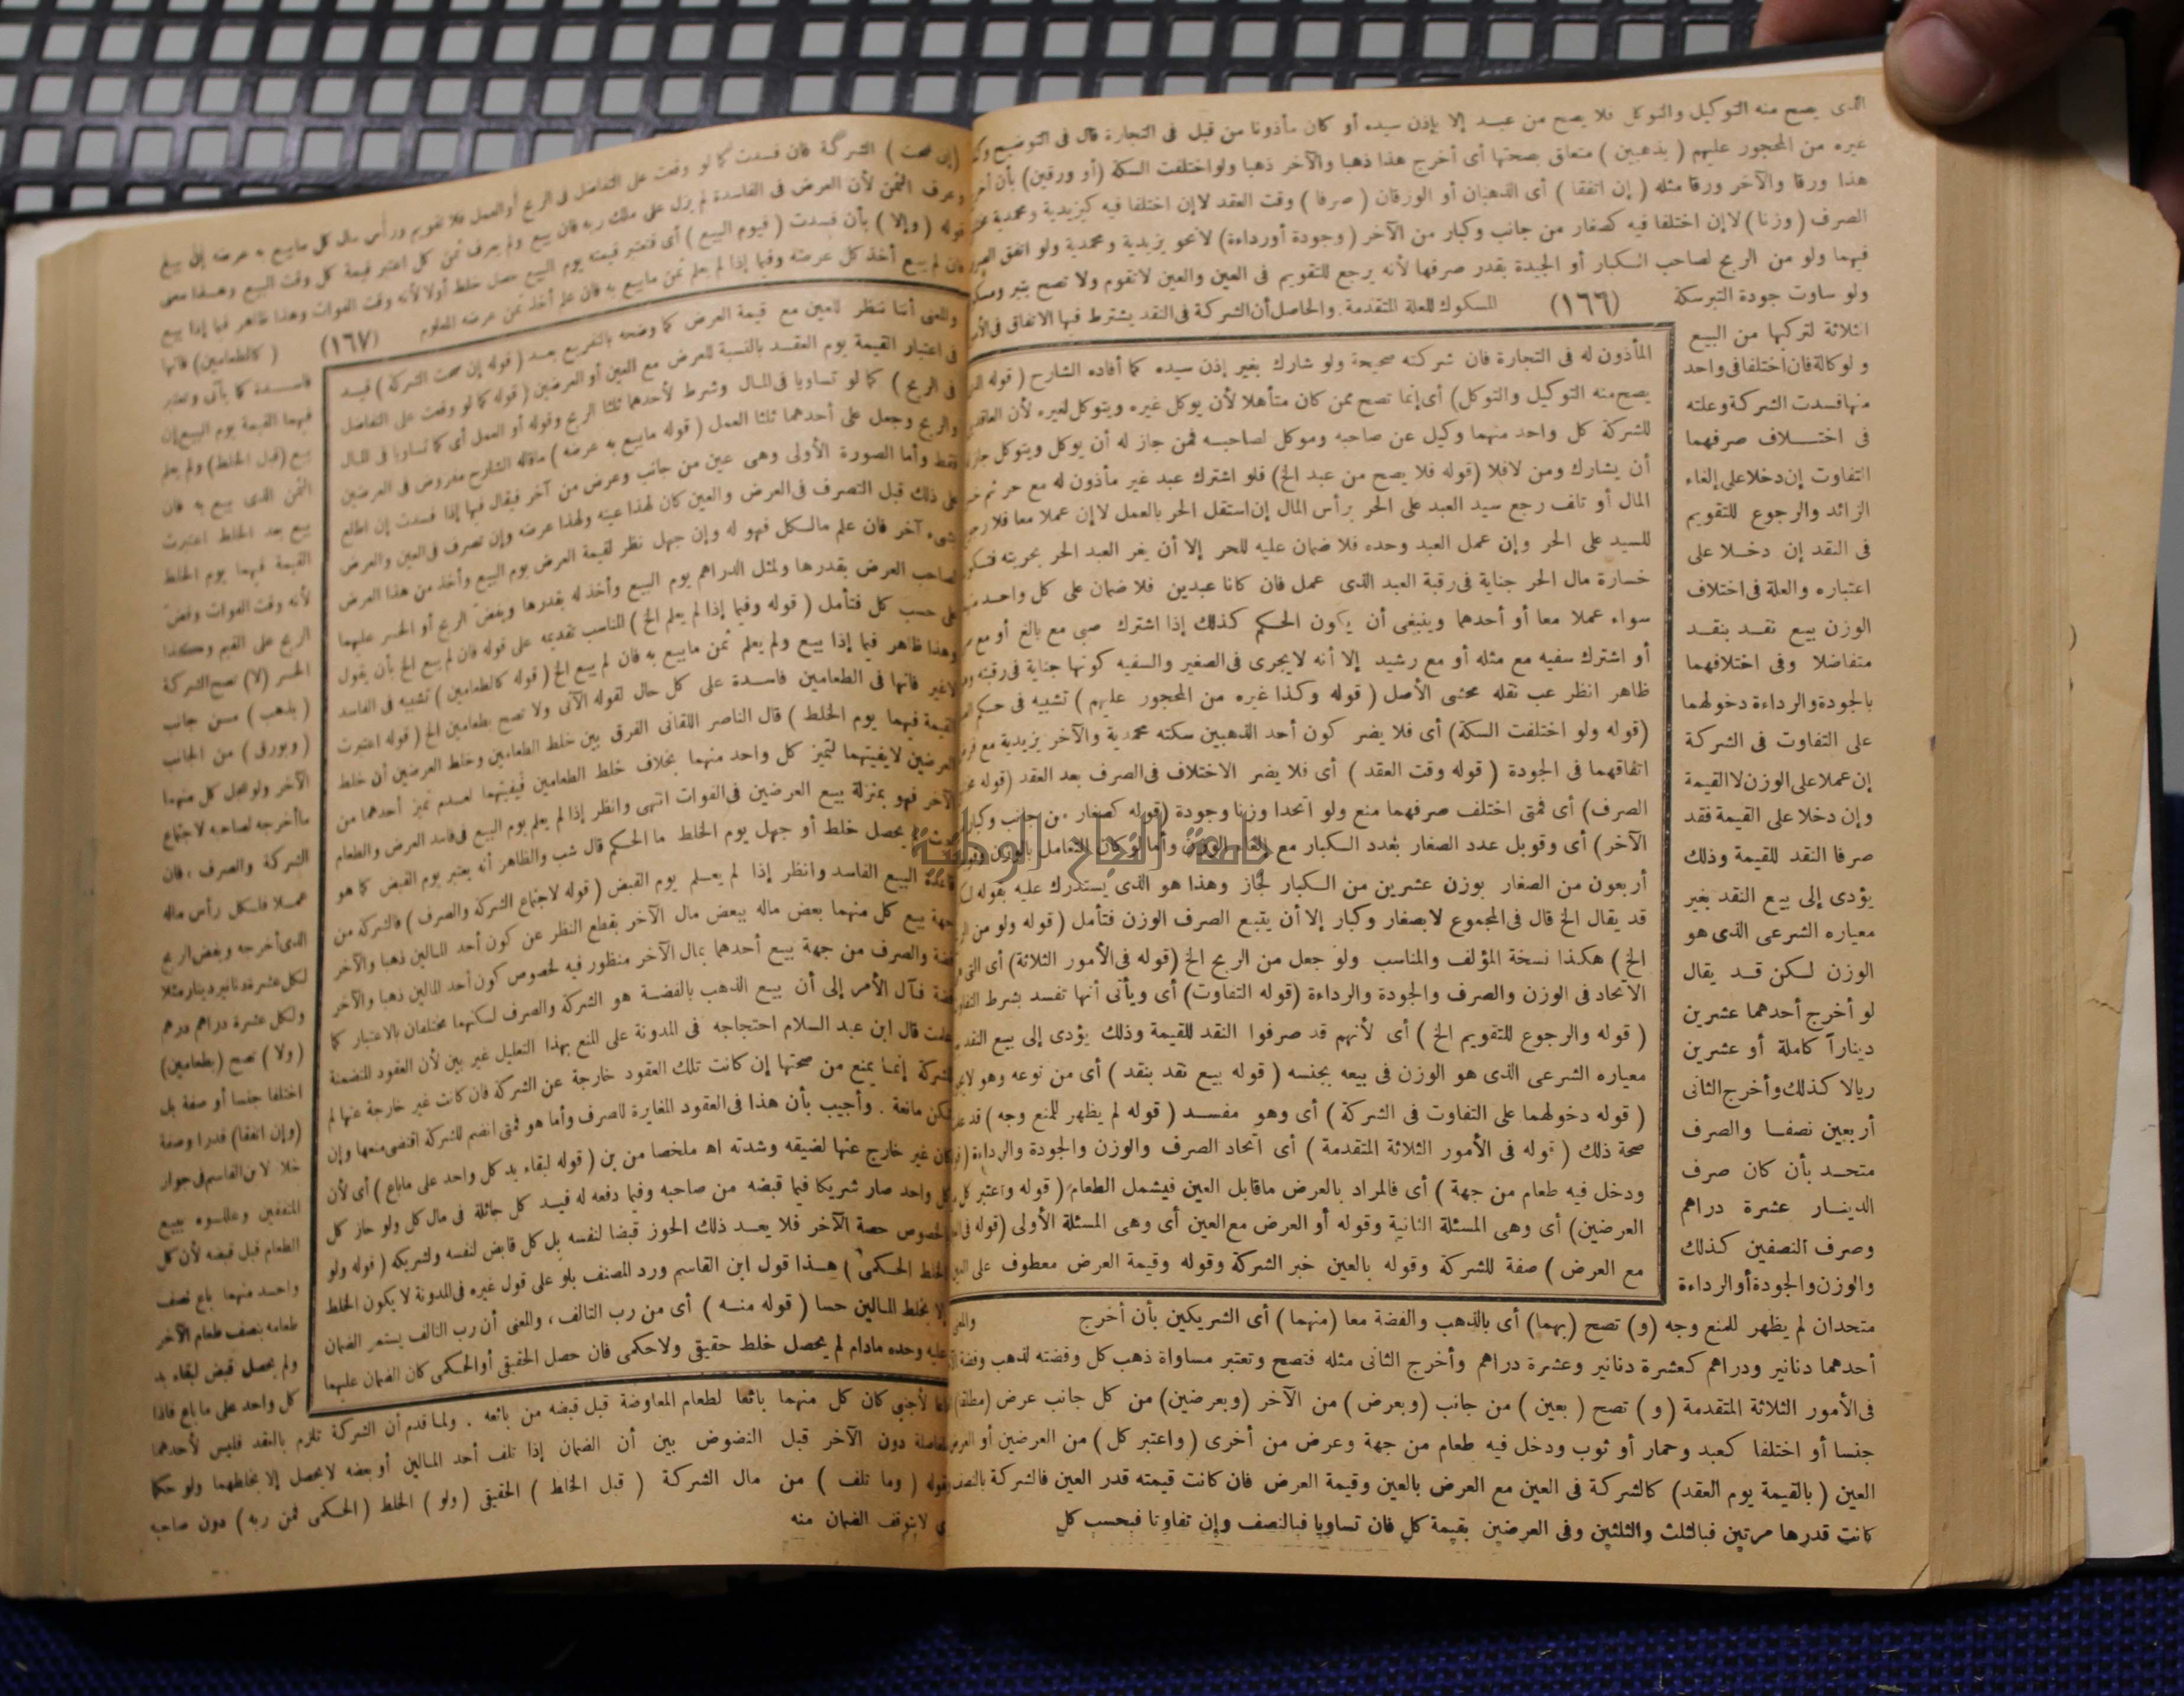 الذى يصح منه التوكيل والتوكل فلا يصح من عبد إلا بإذن سيده أو كان مأذونا من قبل فى التجارة قال فى التوضيح
غيره من المحجور عليهم ( بذهبين ) متعلق بصحتها أى أخرج هذا ذهبا والآخر ذهبا ولو اختلفت السكة (أو ورقين) بأن
هذا ورقا والآخر ورقا مثله ( إن اتفقا ) أى الذهبان أو الورقان ( صرفا ) وقت العقد لا إن اختلفا فيه كيزيدية ومحمدية
الصرف ( وزنا ) لا إن اختلفا فيه كصغار من جانب وكبار من الآخر ( وجودة أورداءة) لا نحو يزيدية ومحمدية ولو اتفق
فيهما ولو من الربح لصاحب الكبار أو الجيدة بقدر صرفها لأنه يرجع للتقويم فى العين والعين لاتقوم ولا تصح بتبر
ولو ساوت جودة التبر سكة
(١٦٦)
المسكوك للعلة المتقدمة. والحاصل أن الشركة فى النقد يشترط فيها الاتفاق فى
الثلاثة لتركبها من البيع
و لو كالة فان اختلفا فى واحد
منها فسدت الشركة وعلته
فى اختـلاف صرفهما
التفاوت إن دخلا على إلغاء
الزائد والرجوع للتقويم
فى النقد إن دخـلا على
اعتباره والعلة فى اختلاف
الوزن بيع نقـد بنقـد
متفاضلا وفى اختلافهما
بالجودة والرداءة دخولهما
على التفاوت فى الشركة
إن عملا على الوزن لا القيمة
وإن دخلا على القيمة فقد
صرفا النقد للقيمة وذلك
يؤدى إلى بيع النقد بغير
معياره الشرعى الذى هو
الوزن لـكن قـد يقال
لو أخرج أحدهما عشرين
ديناراً كاملة أو عشرين
ريالا كذلك وأخرج الثانى
أربعين نصفـا والصرف
متحـد بأن كان صرف
الدينـار عشرة دراهم
وصرف النصفين كذلك
والوزن والجودة أوالرداءة
المأذون له فى التجارة فان شركته صحيحة ولو شارك بغير إذن سيده كما أفاده الشارح ( قوله
يصح منه التوكيل والتوكل) أى إنما تصح ممن كان متأهلا لأن يوكل غيره ويتوكل لغيره لأن
للشركة كل واحد منهما وكيل عن صاحبه وموكل لصاحبـه فمن جاز له أن يوكل ويتوكل
أن يشارك ومن لا فلا (قوله فلا يصح من عبد الخ) فلو اشترك عبد غير مأذون له مع حر ثم
المال أو تلف رجع سيد العبد على الحر برأس المال إن استقل الحر بالعمل لا إن عملا معا فلا
للسيد على الحر وإن عمل العبد وحده فلا ضمان عليه للحر إلا أن يغر العبد الحر بحريته
خسارة مال الحر جناية فى رقبة العبد الذى عمل فان كانا عبدين فلا ضمان على كل واحـد
سواء عملا معا أو أحدهما وينبغى أن يكون الحكم كذلك إذا اشترك صبى مع بالغ أو مع
أو اشترك سفيه مع مثله أو مع رشيد إلا أنه لا يجرى فى الصغير والسفيه كونها جناية فى رقبته
ظاهر انظر عب نقله محشى الأصل ( قوله وكذا غيره من المحجور عليهم ) تشبيه فى حكم
(قوله ولو اختلفت السكة) أى فلا يضر كون أحد الذهبين سكته محمدية والآخر يزيدية مع
اتفاقهما فى الجودة ( قوله وقت العقد ) أى فلا يضر الاختلاف فى الصرف بعد العقد (قوله
الصرف) أى فمتى اختلف صرفهما منع ولو اتحدا وزنا وجودة (قوله كصغار من جانب وكبار
الآخر) أى وقوبل عدد الصغار بعدد الـكبار مع إلغاء الوزن وأما لو كان التعامل بالوزن
أربعون من الصغار بوزن عشرين من الـكبار لجاز وهذا هو الذى يستدرك عليه بقوله
قد يقال الخ قال فى المجموع لا بصغار وكبار إلا أن يتبع الصرف الوزن فتأمل ( قوله ولو من
الخ) هكذا نسخة المؤلف والمناسب ولو جعل من الربح الخ (قوله فى الأمور الثلاثة) أى
الاتحاد فى الوزن والصرف والجودة والرداءة (قوله التفاوت) أى ويأتى أنها تفسد بشرط
( قوله والرجوع للتقويم الخ ) أى لأنهم قد صرفوا النقد للقيمة وذلك يؤدى إلى بيع النقد
معياره الشرعى الذى هو الوزن فى بيعه بجنسه ( قوله بيع نقد بنقد ) أى من نوعه وهو
( قوله دخولهما على التفاوت فى الشركة ) أى وهو مفسـد ( قوله لم يظهر للمنع وجه )
صحة ذلك ( قوله فى الأمور الثلاثة المتقدمة ) أى اتحاد الصرف والوزن والجودة والرداءة
ودخل فيه طعام من جهة ) أى فالمراد بالعرض ماقابل العين فيشمل الطعام ( قوله واعتبر كل
العرضين) أى وهى المسئلة الثانية وقوله أو العرض مع العين أى وهى المسئلة الأولى (قوله
مع العرض ) صفة للشركة وقوله بالعين خبر الشركة وقوله وقيمة العرض معطوف على
متحدان لم يظهر للمنع وجه (و) تصح (بهما) أى بالذهب والفضة معا (منهما) أى الشريكين بأن أخرج
أحدهما دنانير ودراهم كعشرة دنانير وعشرة دراهم وأخرج الثانى مثله فتصح وتعتبر مساواة ذهب كل وفضته لذهب وفضة
فى الأمور الثلاثة المتقدمة ( و ) تصح ( بعين ) من جانب (وبعرض) من الآخر (وبعرضين) من كل جانب عرض (مطلقا)
جنسا أو اختلفا كعبد وحمار أو ثوب ودخل فيه طعام من جهة وعرض من أخرى ( واعتبر كل ) من العرضين أو
العين ( بالقيمة يوم العقد) كالشركة فى العين مع العرض بالعين وقيمة العرض فان كانت قيمته قدر العين فالشركة بالنصف
كانت قدرها مرتين فبالثلث والثلثين وفى العرضين بقيمة كل فان تساويا فبالنصف وإن تفاوتا فبحسب كل
(إن صحت ) الشركة فان فسدت كما لو وقعت على التفاضل فى الربح أو العمل فلا تقويم ورأس مال كل مابيع به عرضه إن بيع
وعرف الثمن لأن العرض فى الفاسدة لم يزل على ملك ربه فان بيع ولم يعرف ثمن كل اعتبر قيمة كل وقت البيع وهـذا معنى
قوله ( وإلا ) بأن فسدت ( فيوم البيع ) أى فتعتبر قيمته يوم البيع حصل خلط أولا لأنه وقت الفوات وهذا ظاهر فيما إذا بيع
فان لم يبع أخذ كل عرضه وفيما إذا لم يعلم ثمن مابيع به فان علم أخذ ثمن عرضه المعلوم
(١٦٧)
( كالطعامين) فانها
فاسـدة كما يأتى وتعتبر
فيهما القيمة يوم البيع إن
بيع (قبل الخلط) ولم يعلم
الثمن الذى بيع به فان
بيع بعد الخلط اعتبرت
القيمة فيهما يوم الخلط
لأنه وقت الفوات وفض
الربح على القيم وكذا
الخسر (لا) تصح الشركة
( بذهب ) مـن جانب
( وبورق ) من الجانب
الآخر ولو عجل كل منهما
ما أخرجه لصاحبه لاجتماع
الشركة والصرف ، فان
عمـلا فلـكل رأس ماله
الذى أخرجه وبفض الربح
لكل عشرة دنانير دينار مثلا
ولكل عشرة دراهم درهم
(ولا) تصح (بطعامين)
اختلفا جنسا أو صفة بل
(وإن اتفقا) قدرا وصفة
خلافا لابن القاسم فى جواز
المتفقين وعللـوه ببيع
الطعام قبل قبضه لأن كل
واحـد منهما باع نصف
طعامه بنصف طعام الآخر
ولم يحصل قبض لبقاء يد
كل واحد على ما باع فاذا
والمعنى أننا ننظر للعين مع قيمة العرض كما وضحه بالتفريع بعـد (قوله إن صحت الشركة ) قيـد
فى اعتبار القيمة يوم العقـد بالنسبة للعرض مع العين أو العرضين (قوله كما لو وقعت على التفاضل
فى الربح ) كما لو تساويا فى المـال وشرط لأحدهما ثلثا الربح وقوله أو العمل أى كما تساويا فى المـال
والربح وجعل على أحدهما ثلثا العمل ( قوله مابيع به عرضه ) ماقاله الشارح مفروض فى العرضين
فقط وأما الصورة الأولى وهى عين من جانب وعرض من آخر فيقال فيها إذا فسدت إن اطلع
على ذلك قبل التصرف فى العرض والعين كان لهذا عينه ولهذا عرضه وإن تصرف فى العين والعرض
شىء آخر فان علم مالـكل فهو له وإن جهل نظر لقيمة العرض يوم البيع وأخذ من هذا العرض
لصاحب العرض بقدرها ولمثل الدراهم يوم البيع وأخذ له بقدرها وبفض الربح أو الخسر عليهما
على حسب كل فتأمل ( قوله وفيما إذا لم يعلم الخ ) المناسب تقديمه على قوله فان لم يبع الخ بأن يقول
وهذا ظاهر فيما إذا بيع ولم يعلم ثمن مابيع به فان لم يبع الخ ( قوله كالطعامين ) تشبيه فى الفاسد
لاغير فانها فى الطعامين فاسـدة على كل حال لقوله الآتى ولا تصح بطعامين الخ ( قوله اعتبرت
القيمة فيهما يوم الخلط ) قال الناصر اللقانى الفرق بين خلط الطعامين وخلط العرضين أن خلط
العرضين لايفيتهما لتميز كل واحد منهما بخلاف خلط الطعامين فيفيتهما لعـدم تميز أحدهما من
الآخر فهو بمنزلة بيع العرضين فى الفوات انتهى وانظر إذا لم يعلم يوم البيع فى فاسد العرض والطعام
يحصل خلط أو جهل يوم الخلط ما الحكم قال شب والظاهر أنه يعتبر يوم القبض كما هو
قاعدة البيع الفاسد وانظر إذا لم يعـلم يوم القبض ( قوله لاجتماع الشركة والصرف ) فالشركة من
جهة بيع كل منهما بعض ماله ببعض مال الآخر بقطع النظر عن كون أحد المالين ذهبا والآخر
فضة والصرف من جهة بيع أحدهما بمال الآخر منظور فيه لخصوص كون أحد المالين ذهبا والآخر
فضة فـآل الأمر إلى أن بيع الذهب بالفضـة هو الشركة والصرف لـكنهما مختلفان بالاعتبار كما
علمت قال ابن عبد السلام احتجاجه فى المدونة على المنع بهذا التعليل غير بين لأن العقود المنضمة
للشركة إنمـا يمنع من صحتها إن كانت تلك العقود خارجة عن الشركة فان كانت غير خارجة عنها لم
تكن مانعة . وأجيب بأن هذا فى العقود المغايرة للصرف وأما هو فمتى انضم للشركة اقتضى منعها وإن
كان غير خارج عنها لضيقه وشدته اه ملخصا من بن ( قوله لبقاء يد كل واحد على ماباع ) أى لأن
كل واحد صار شريكا فيما قبضه من صاحبه وفيما دفعه له فيـد كل جائلة فى مال كل ولو حاز كل
لخصوص حصة الآخر فلا يعـد ذلك الحوز قبضا لنفسه بل كل قابض لنفسه ولشريكه ( قوله ولو
الخلط الحـكمى ) هـذا قول ابن القاسم ورد المصنف بلو على قول غيره فى المدونة لا يكون الخلط
إلا بخلط المـالين حسا ( قوله منـه ) أى من رب التالف ، والمعنى أن رب التالف يستمر الضمان
عليه وحده مادام لم يحصل خلط حقيقى ولاحكمى فان حصل الحقيقى أوالحكمى كان الضمان عليهما
لأجنبى كان كل منهما بائعا لطعام المعاوضة قبل قبضه من بائعه . ولمـا قدم أن الشركة تلزم بالعقد فليس لأحدهما
المفاصلة دون الآخر قبل النضوض بين أن الضمان إذا تلف أحد المـالين أو بعضه لايحصل إلا بخلطهما ولو حكما
بقوله ( وما تلف ) من مال الشركة ( قبل الخلط ) الحقيقى (ولو ) الخلط (الحكمى فمن ربه ) دون صاحبه
لايتوقف الضمان منه
جامعة النجاح الوطنية